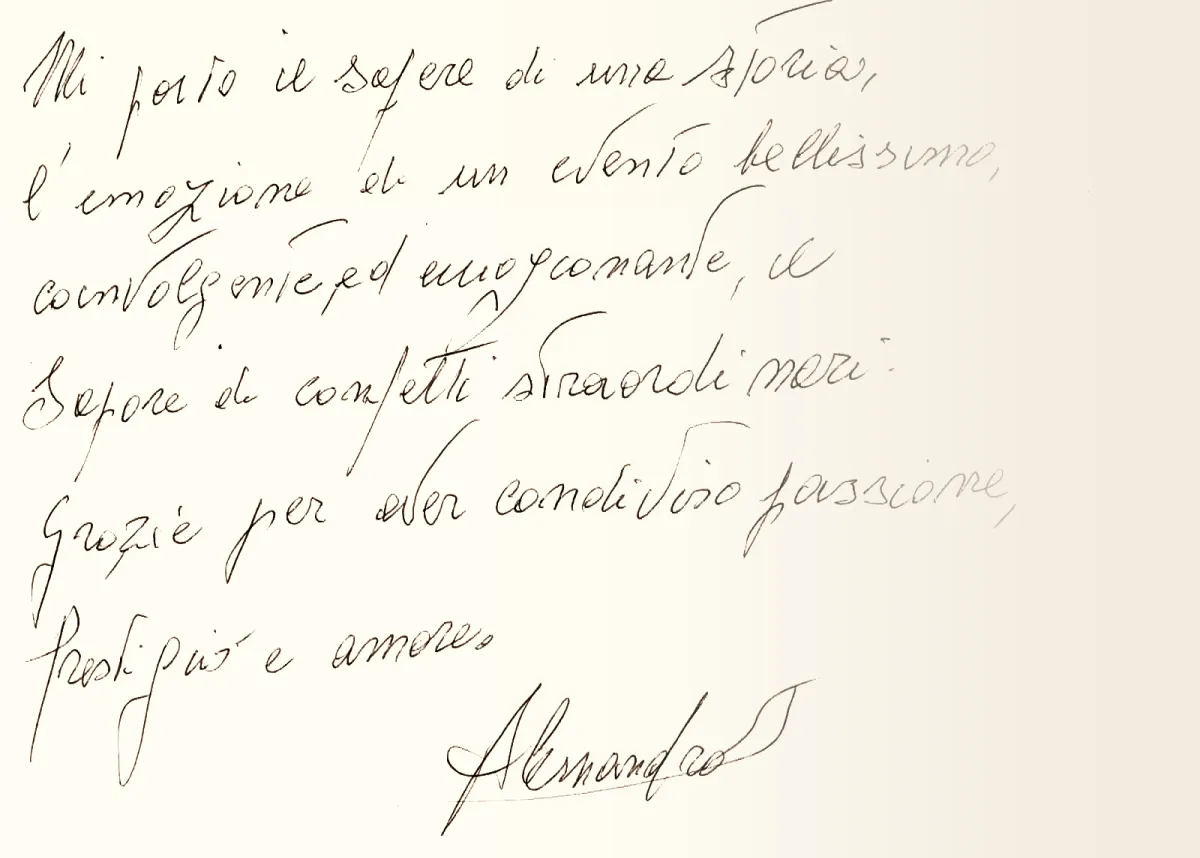 Mi porto il sapere di una storia,
l'emozione di un evento bellissimo,
coinvolgente, ed emozionante, il
Sapore di confetti straordinari.
Grazie per aver condiviso passione,
Prestigio e amore.
Alessandro